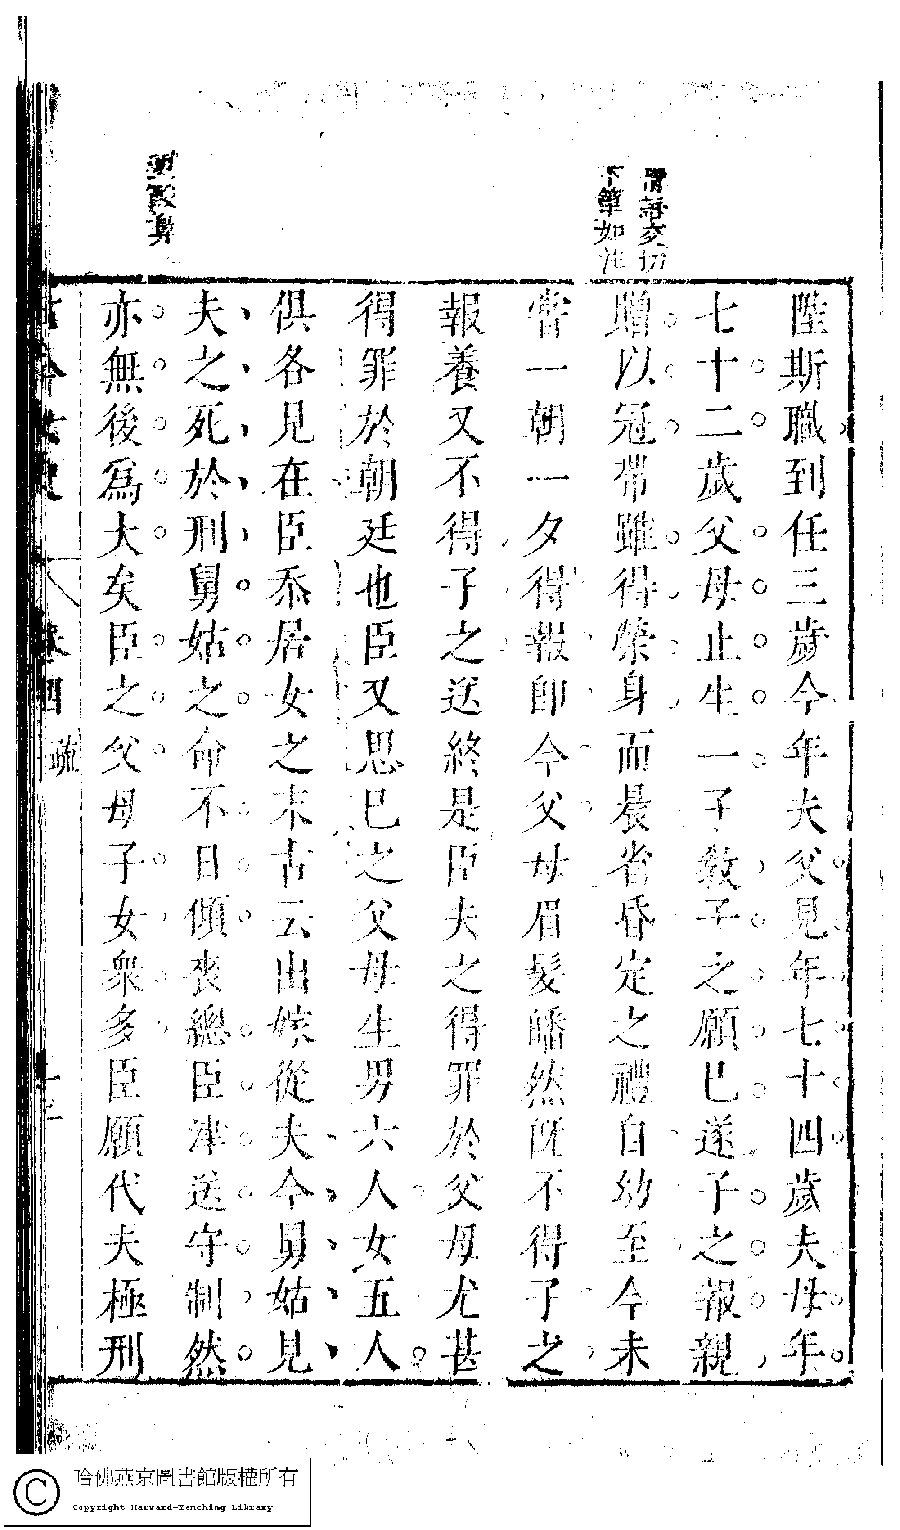 情詞交切
下筆如
陞斯職到任三歲今年夫父見年七十四歲夫母年
七十二歲父母止生一子教子之願已遂子之報親
贈以冠帶雖得榮身而晨省昏定之禮自幼至今未
嘗一朝一夕得報即今父母眉髮皤然既不得子之
報養又不得子之送終是臣夫之得罪於父母尤甚
得罪於朝廷也臣又思已之父母生男六人女五人
俱各見在臣忝居女之末古云出嫁從夫今舅姑見
夫之死於刑舅姑之命不日傾喪總臣津送守制然
亦無後爲大矣臣之父母子女衆多臣願代夫極刑
卷四
疏
哈佛燕京圖書館版權所有
Copyright Harvard-Yenching Library